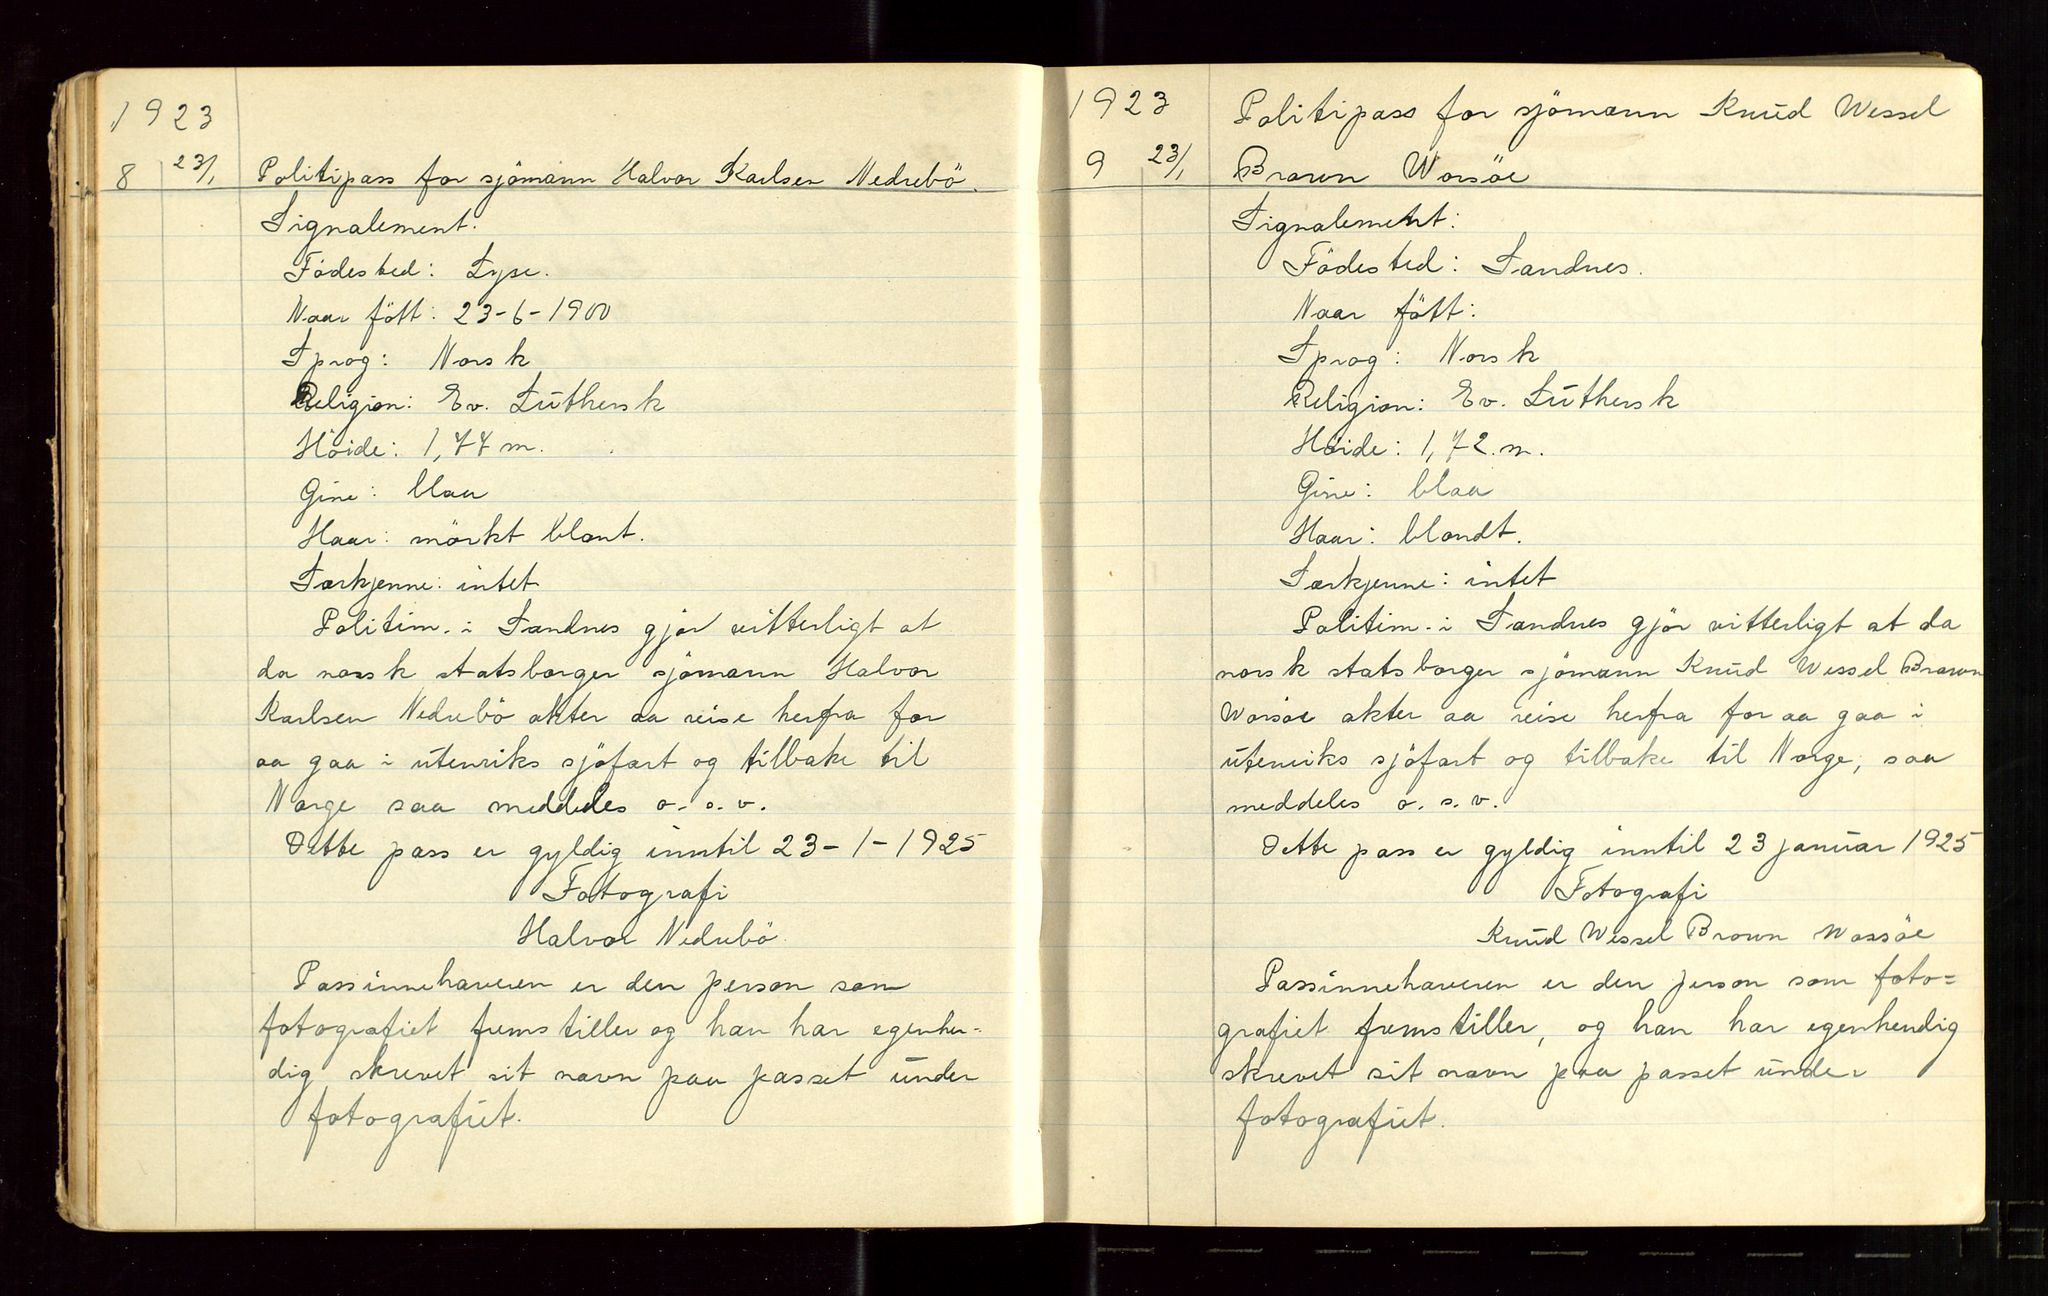 1923
8 23/1 Politipass for sjömann Halvor Karlsen Nedrebö.
Signalement:
Födested: Lyse.
Naar fött: 23-6-1900
Sprog: Norsk
Religion: Ev. Luthersk
Höide: 1,77 m.
Öine: blaa
Haar: mörkt blont.
Særkjenne: intet
Politim. i Sandnes gjör vitterligt at
da norsk statsborger sjömann Halvor
Karlsen Nedrebö akter aa reise herfra for
aa gaa i utenriks sjöfart og tilbake til
Norge saa meddeles o. s. v.
Dette pass er gyldig inntil 23-1-1925
Fotografi
Halvor Nedrebö
Passinnehaveren er den person som
fotografiet fremstiller og han har egenhen-
dig skrevet sit navn paa passet under
fotografiet.
1923 Politipass for sjömann Knud Wessel
9 23/1 Brown Worsöe
Signalement:
Födested: Sandnes.
Naar fött:
Sprog: Norsk
Religion: Ev. Luthersk
Höide: 1,72 m.
Öine: blaa
Haar: blondt.
Særkjenne: intet
Politim. i Sandnes gjör vitterligt at da
norsk statsborger sjömann Knud Wessel Brown
Worsöe akter aa reise herfra for aa gaa i
utenriks sjöfart og tilbake til Norge, saa
meddeles o. s. v.
Dette pass er gyldig inntil 23 januar 1925
Fotografi
Knud Wessel Brown Worsöe
Passinnehaveren er den person som foto=
grafiet fremstiller, og han har egenhendig
skrevet sit navn paa passet under
fotografiet.